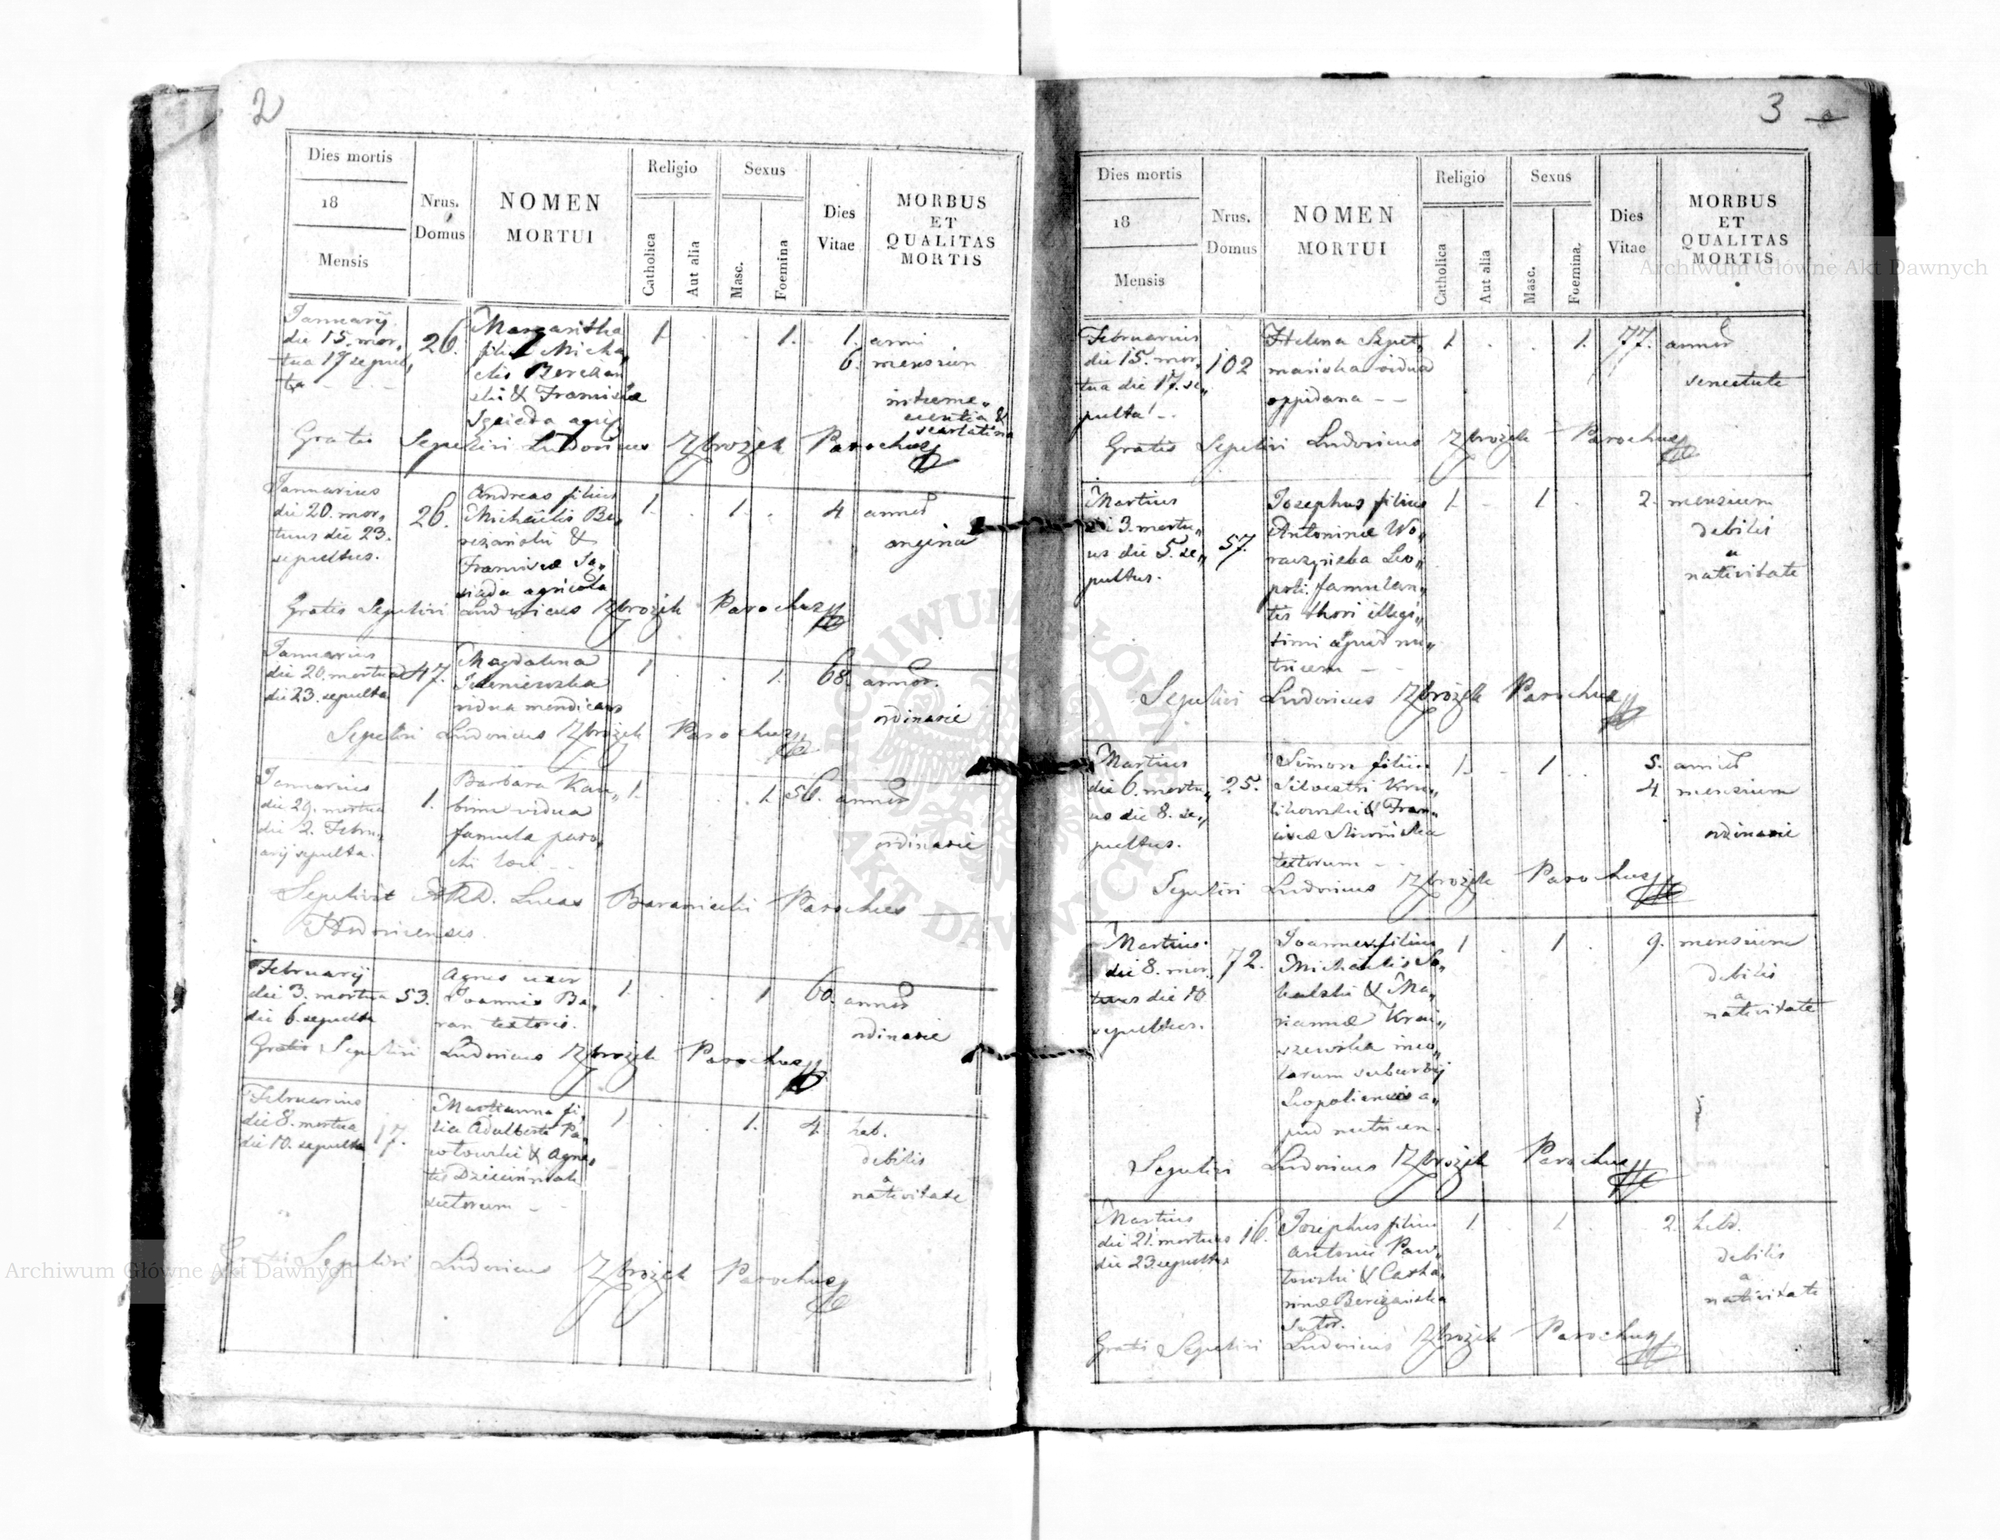 2
Dies mortis
18
Mensis
Nrus.
Domus
NOMEN
MORTUI
Religio
Catholica
Aut alia
Sexus
Masc.
Foemina
Dies
Vitae
MORBUS
ET
QUALITAS
MORTIS
Januarij
die 15. mor„
tua 17 sepul„
ta
26.
Margaritha
filia Micha„
elis
& Franciscæ
1 . . 1. 1. anni
6. mensium
Gratis Sepelivi Ludovicus Zbrożek Parochus
Januarius
die 20. mor„
tuus die 23.
sepultus.
26.
Andreas filius
Michaëlis Be„
reżański &
Franciscæ
agricola
1. . 1. . 4 annor
angina
Gratis Sepelivi Ludovicus Zbrożek Parochus
Januarius
die 20. mortua
die 23. sepulta
47.
Magdalena
vidua mendicans
1 . . 1. 68. annor.
ordinarie
Sepelivi Ludovicus Zbrożek Parochus
Januarius
die 29. mortua
die 2. Febru„
arij sepulta.
1.
Barbara
vidua
famula paro„
chi loci
1. . . 1. 56. annor
ordinarie
Sepelivit Lucas Baraniecki Parochus
Februarij
die 3. mortua
die 6. sepulta
53.
Agnes uxor
Joannis Ba„
ran textoris.
1. . . 1 60. annor
ordinarie
Gratis Sepelivi Ludovicus Zbrożek Parochus
Februarius
die 8. mortua
die 10. sepulta
17.
Marianna fi„
lia Adalberti
& Agne„
tis
sutorum
1 . . 1. 4. heb.
debilis
a
nativitate
Gratis Sepelivi Ludovicus Zbrożek Parochus
3
Dies mortis
18
Mensis
Nrus.
Domus
NOMEN
MORTUI
Religio
Catholica
Aut alia
Sexus
Masc.
Foemina.
Dies
Vitae
MORBUS
ET
QUALITAS
MORTIS
Februarius
die 15. mor„
tua die 17. se„
pulta
102
Helena
vidua
oppidana
1 . . 1. 77. annor
senectute
Gratis Sepelivi Ludovicus Zbrożek Parochus
Martius
die 3. mortu„
us die 5. se„
pultus.
57.
Josephus filius
Antoninæ Wo„
Leo„
poli famulan„
tis thori illegi„
timi apud nu„
tricem
1 . 1 . 2. mensium
debilis
a
nativitate
Sepelivi Ludovicus Zbrożek Parochus
Martius
die 6. mortu„
us die 8. se„
pultus.
25.
Simon filius
Silvestri Kru„
likowski & Fran„
ciscæ
textorum
1. . 1 . . 5. annor
4. mensium
ordinarie
Sepelivi Ludovicus Zbrożek Parochus
Martius
die 8. mor„
tuus die 10
sepultus.
72.
Joannes filius
Michaelis So„
balski & Ma„
riannæ Krai„
szewska inco„
larum suburbij
Leopoliensis a„
pud nutricem.
1 . 1 . 9. mensium
debilis
a
nativitate
Sepelivi Ludovicus Zbrożek Parochus
Martius
die 21. mortuus
die 23. sepultus
16.
Josephus filius
Antonii Paw„
łowski & Catha„
rinæ Bereżańska
sutor.
1. . 1 . 2. hebd.
debilis
a
nativitate
Gratis Sepelivi Ludovicus Zbrożek Parochus
Archiwum Główne Akt Dawnych
Archiwum Główne Akt Dawnych
ARCHIWUM GŁÓWNE
AKT DAWNYCH